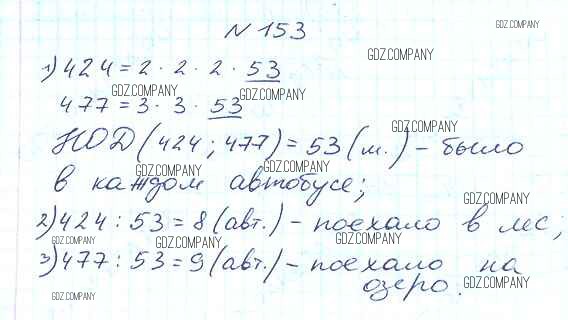 № 153
GDZ.COMPANY
GDZ.COMPANY
1) 424 = 2 · 2 · 2 · 53
GDZ.COMPANY
GDZ.COMPANY
477 = 3 · 3 · 53
GDZ.COMPANY
НОД (424; 477) = 53 (м.) – было
GDZ.COMPANY
GDZ.COMPANY
в каждом автобусе;
GDZ.COMPANY
2) 424 : 53 = 8 (авт.) – поехало в лес;
GDZ.COMPANY
GDZ.COMPANY
GDZ.COMPANY
3) 477 : 53 = 9 (авт.) – поехало на
озеро.
GDZ.COMPANY
GDZ.COMPANY
GDZ.COMPANY